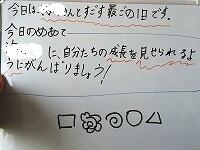 今日は さんとすごす最ごの1日です。
今日のめあて
に、自分たちの成長を見せられるよ
うにがんばりましょう!